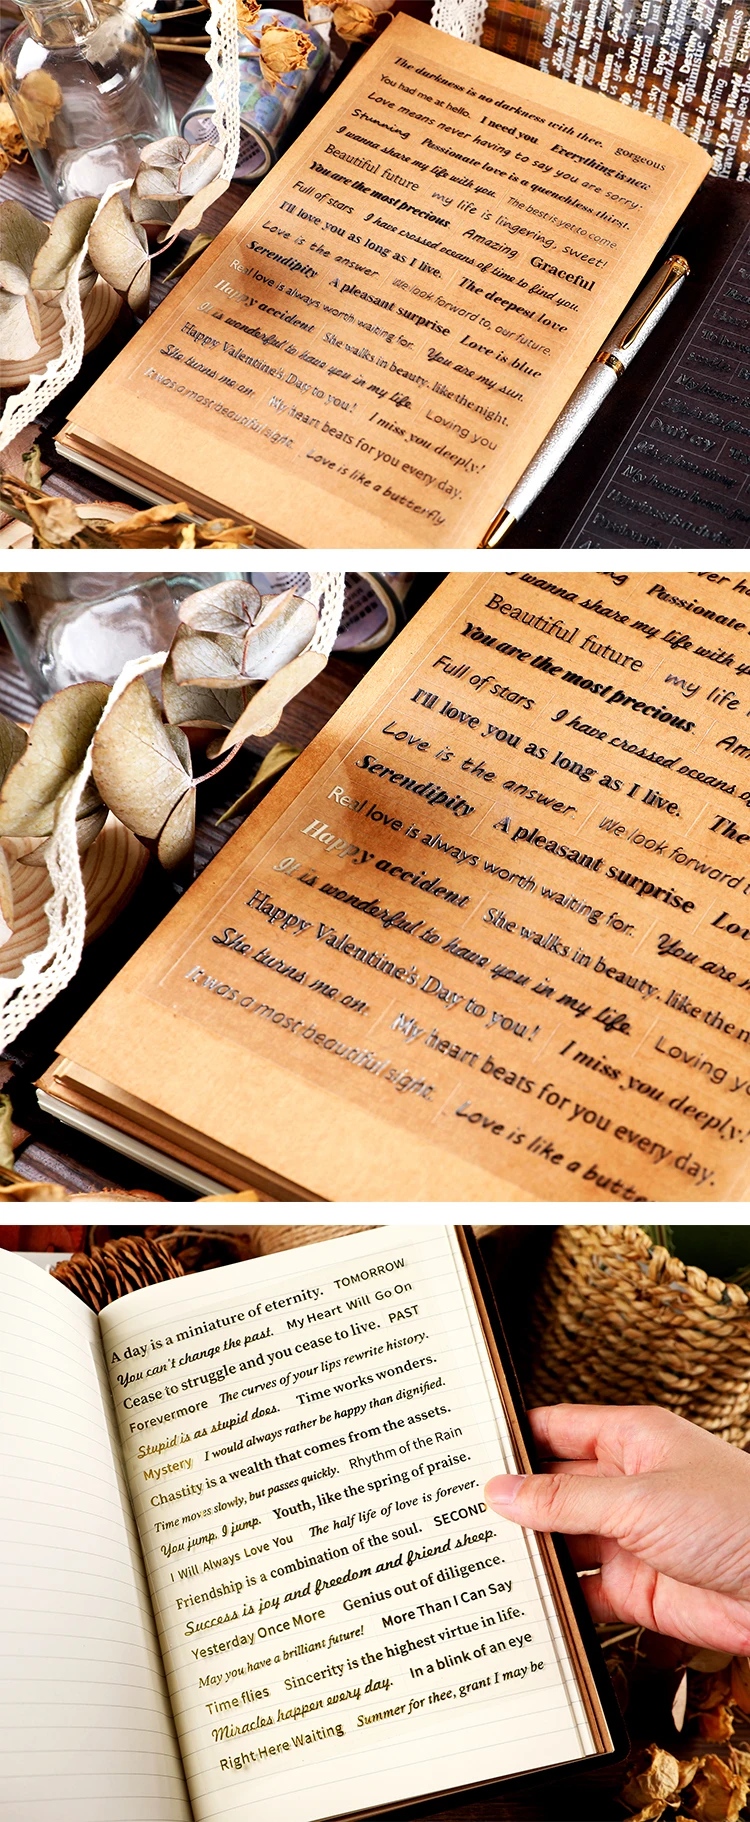 The darkness is no darkness with thee. gorgeous
You had me at hello. I need you Everything is new
Love means never having to say you are sorry.
Stunning Passionate love is a quenchless thirst.
I wanna share my life with you. The best is yet to come
Beautiful future my life is lingering, sweet!
You are the most precious. Amazing Graceful
Full of stars I have crossed oceans of time to find you.
I'll love you as long as I live. The deepest love
Love is the answer. We look forward to, our future.
Serendipity A pleasant surprise Love is blue
Real love is always worth waiting for. You are my sun.
Happy accident She walks in beauty, like the night.
It is wonderful to have you in my life. Loving you
Happy Valentine's Day to you! I miss you deeply!
She turns me on. My heart beats for you every day.
It was a most beautiful sight. Love is like a butterfly
Don't cry
Passionate
I wanna share my life with
Beautiful future my life
You are the most precious.
Full of stars I have crossed oceans
I'll love you as long as I live. The
Love is the answer. We look forward
Serendipity A pleasant surprise
Real love is always worth waiting for.
Happy accident She walks in beauty, like the
It is wonderful to have you in my life.
Happy Valentine's Day to you! I miss you deeply!
She turns me on. My heart beats for you every day.
It was a most beautiful sight. Love is like a
A day is a miniature of eternity. TOMORROW
You can't change the past. My Heart Will Go On
Cease to struggle and you cease to live. PAST
Forevermore The curves of your lips rewrite history.
Stupid is as stupid does. Time works wonders.
Mystery I would always rather be happy than dignified.
Chastity is a wealth that comes from the assets.
Time moves slowly, but passes quickly. Rhythm of the Rain
You jump, I jump. Youth, like the spring of praise.
I Will Always Love You The half life of love is forever.
Friendship is a combination of the soul. SECOND
Success is joy and freedom and friend sheep.
Yesterday Once More Genius out of diligence.
May you have a brilliant future! More Than I Can Say
Time flies Sincerity is the highest virtue in life.
Miracles happen every day. In a blink of an eye
Right Here Waiting Summer for thee, grant I may be